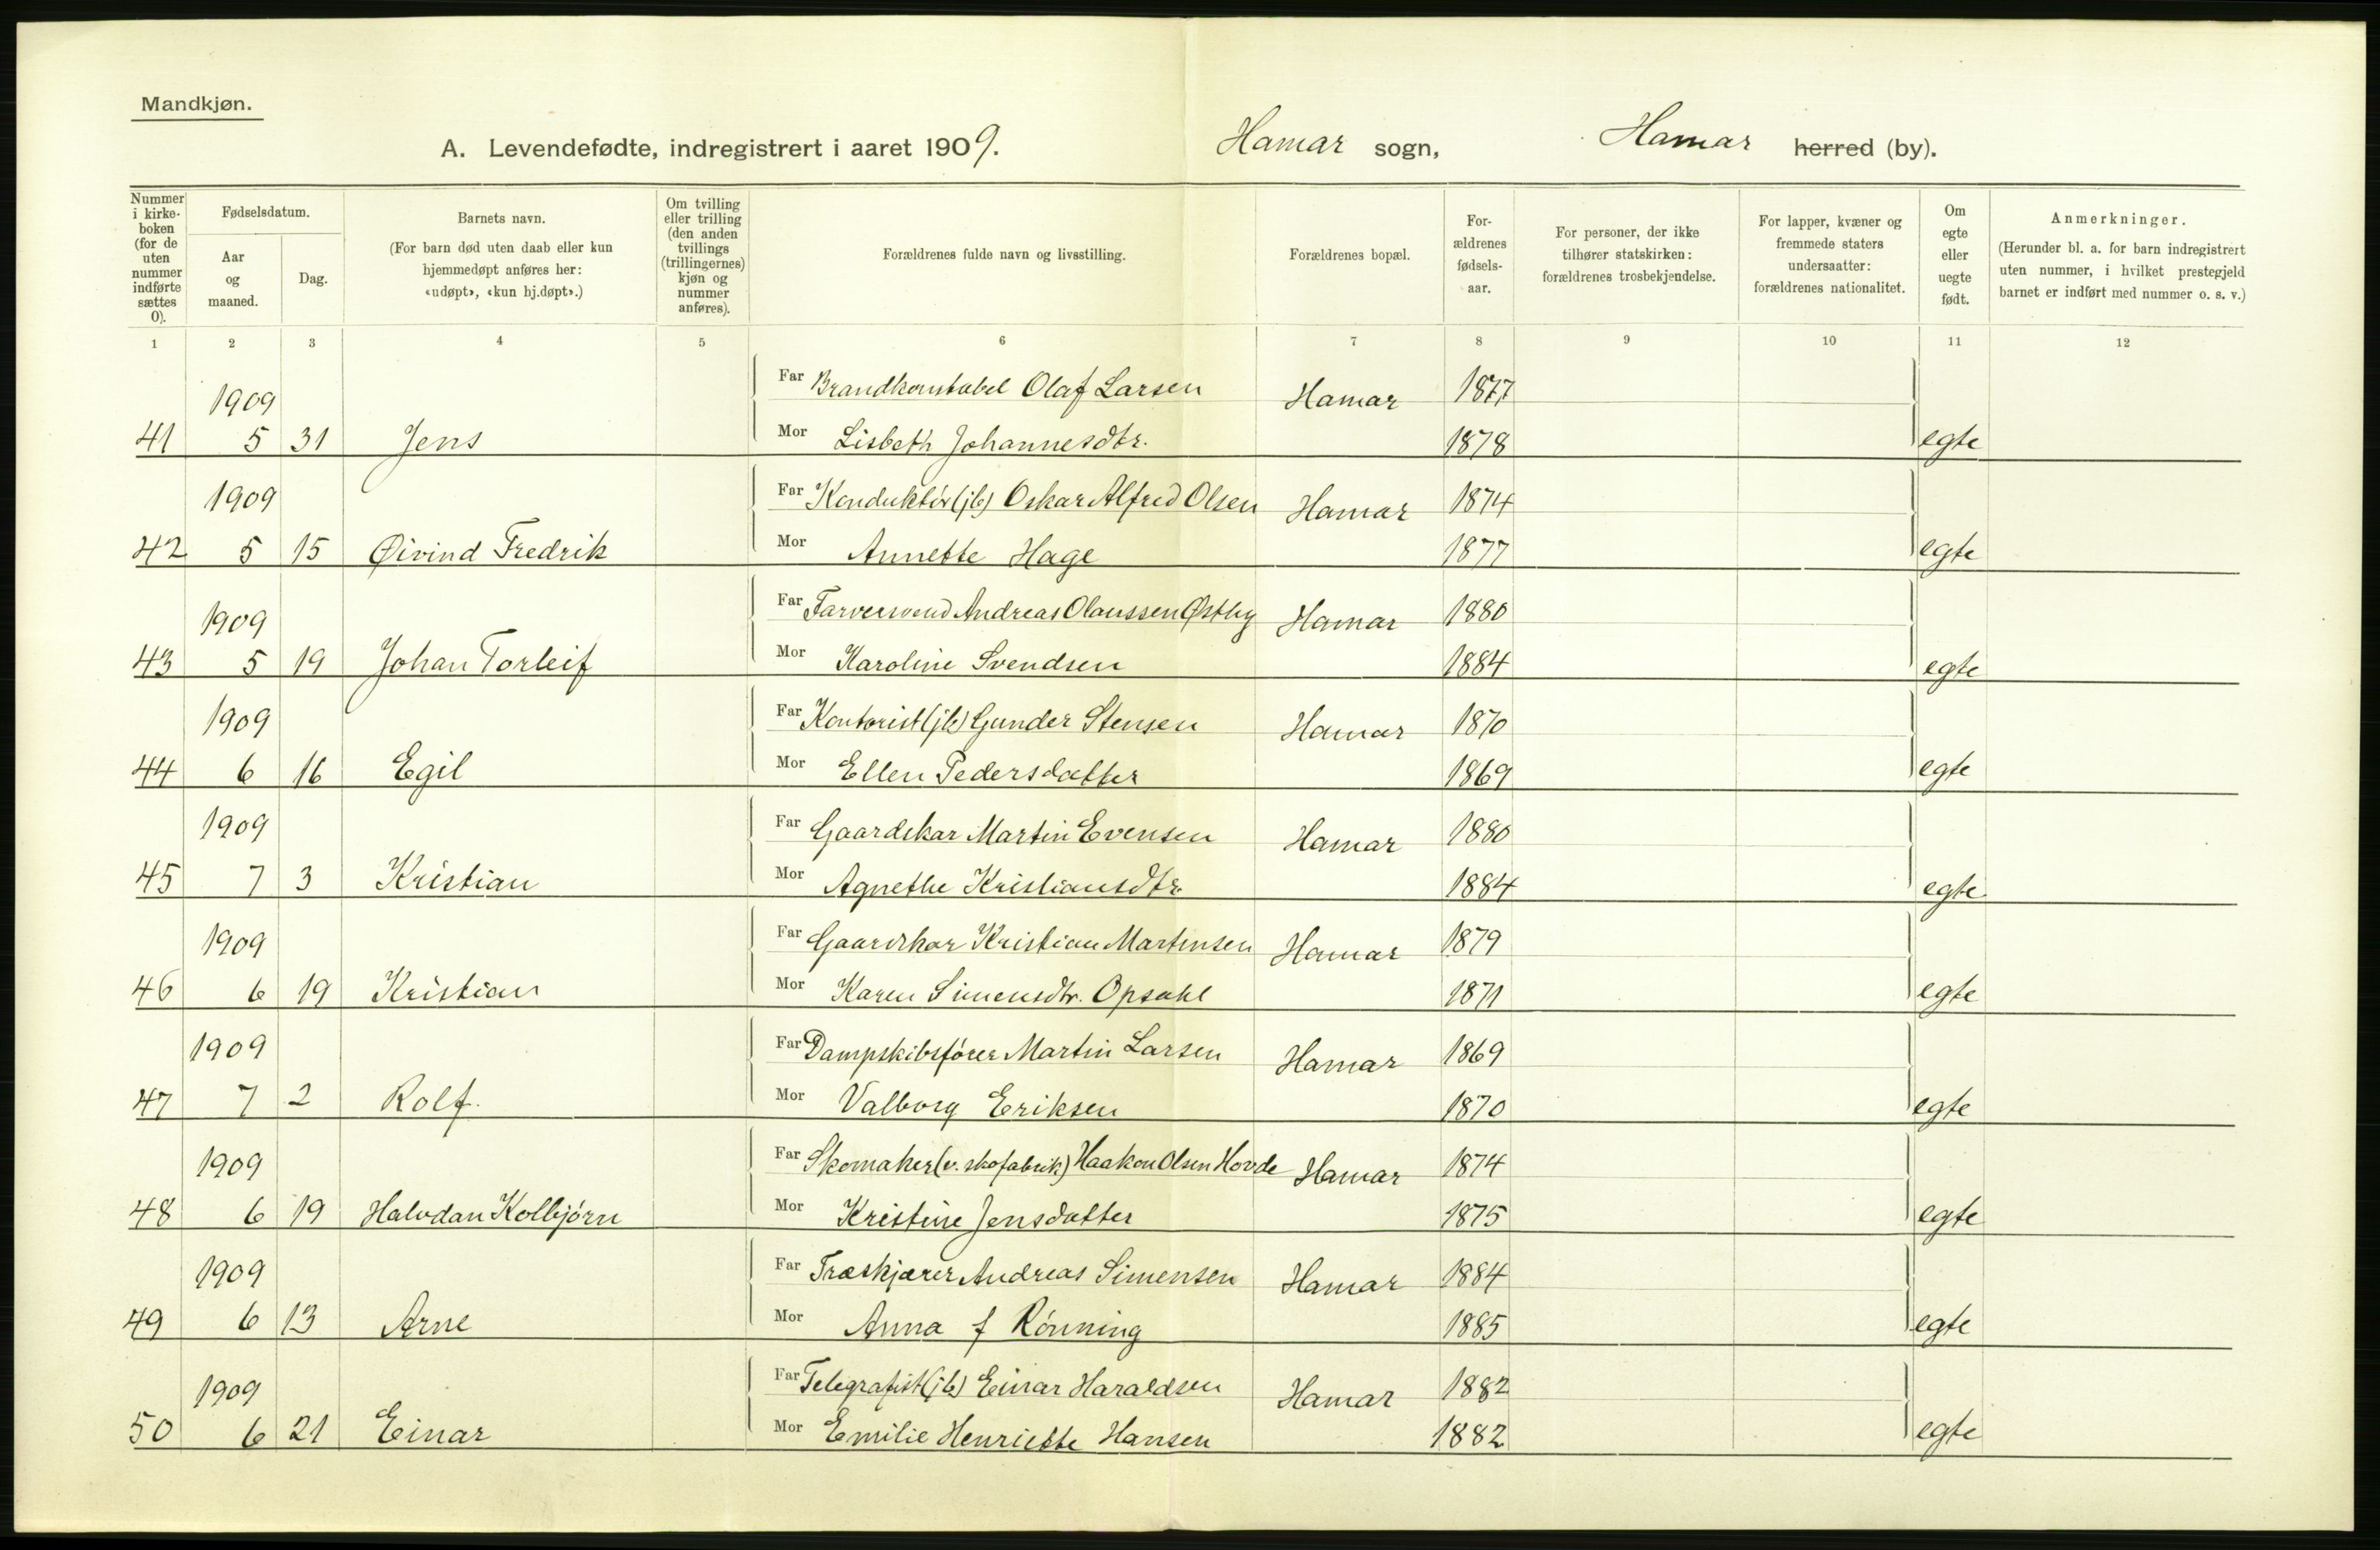 Mandkjøn.
A. Levendefødte, indregistrert i aaret 1909. Hamar sogn, Hamar herred (by).
Nummer i kirke-boken (for de uten nummer indførte sættes 0).
Fødselsdatum.
Aar og maaned.
Dag.
Barnets navn.
(For barn død uten daab eller kun hjemmedøpt anføres her: «udøpt», «kun hj.døpt».)
Om tvilling eller trilling (den anden tvillings (trillingernes) kjøn og nummer anføres).
Forældrenes fulde navn og livsstilling.
Forældrenes bopæl.
For-ældrenes fødsels-aar.
For personer, der ikke tilhører statskirken: forældrenes trosbekjendelse.
For lapper, kvæner og fremmede staters undersaatter: forældrenes nationalitet.
Om egte eller uegte født.
Anmerkninger.
(Herunder bl. a. for barn indregistrert uten nummer, i hvilket prestegjeld barnet er indført med nummer o. s. v.)
1 2 3 4 5 6 7 8 9 10 11 12
1909 Far Brandkonstabel Olaf Larsen Hamar 1877
41 5 31 Jens Mor Lisbeth Johannesdtr. 1878 egte
1909 Far Konduktör (jb) Oskar Alfred Olsen Hamar 1874
42 5 15 Øivind Fredrik Mor Annette Hage 1877 egte
1909 Far Farversvend Andreas Olaussen Østby Hamar 1880
43 5 19 Johan Torleif Mor Karoline Svendsen 1884 egte
1909 Far Kontorist (jb) Gunder Stensen Hamar 1870
44 6 16 Egil Mor Ellen Pedersdatter 1869 egte
1909 Far Gaardskar Martin Evensen Hamar 1880
45 7 3 Kristian Mor Agnethe Kristiansdtr. 1884 egte
1909 Far Gaardskar Kristian Martinsen Hamar 1879
46 6 19 Kristian Mor Karen Simensdtr. Opsahl 1871 egte
1909 Far Dampskibsfører Martin Larsen Hamar 1869
47 7 2 Rolf. Mor Valborg Eriksen 1870 egte
1909 Far Skomaker (v. skofabrik) Haakon Olsen Hovde Hamar 1874
48 6 19 Halvdan Kolbjörn Mor Kristine Jensdatter 1875 egte
1909 Far Træskjærer Andreas Simensen Hamar 1884
49 6 13 Arne Mor Anna f Rönning 1885 egte
1909 Far Telegrafist (jb) Einar Haraldsen Hamar 1882
50 6 21 Einar Mor Emilie Henriette Hansen 1882 egte